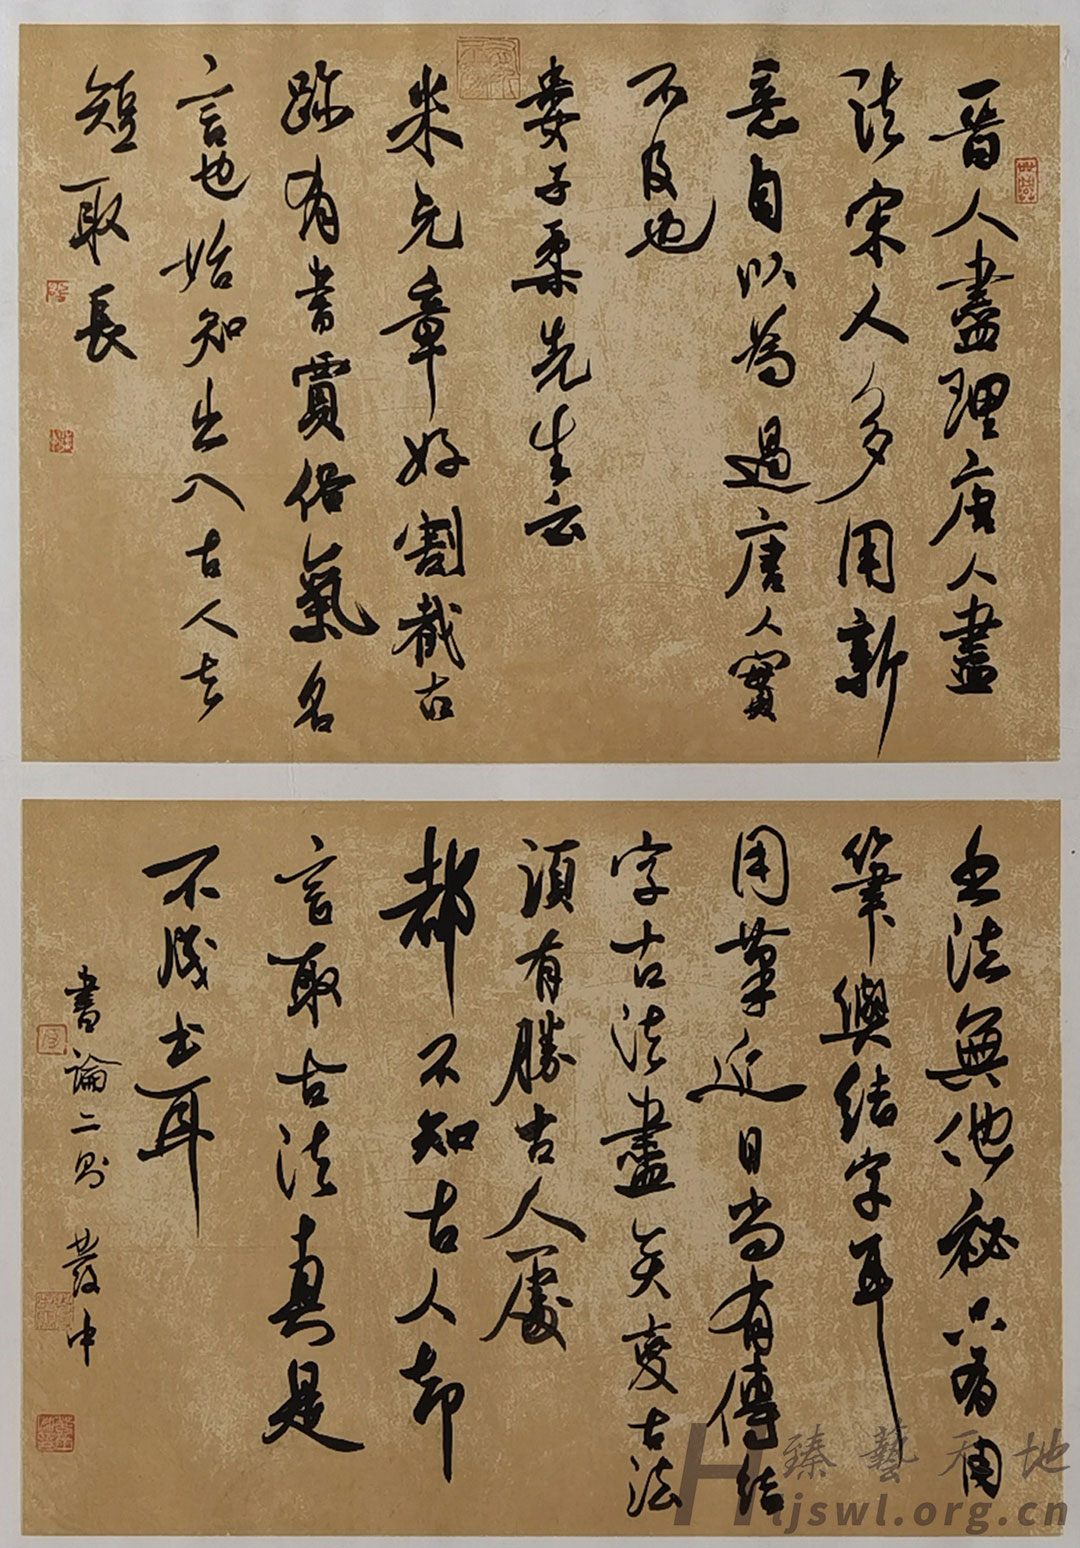 晉人盡理唐人盡
法宋人多用新
意自以為過唐人實
不及也
婁子柔先生云
米元章好割截古
跡有書賈俗氣名
言也始知出入古人去
短取長
書法無他秘只有用
筆與結字耳
用筆近日尚有傳結
字古法盡矣變古法
須有勝古人處
都不知古人却
言取古法真是
不成書耳
書論二則 發中
臻藝天地
Hljswl.org.cn